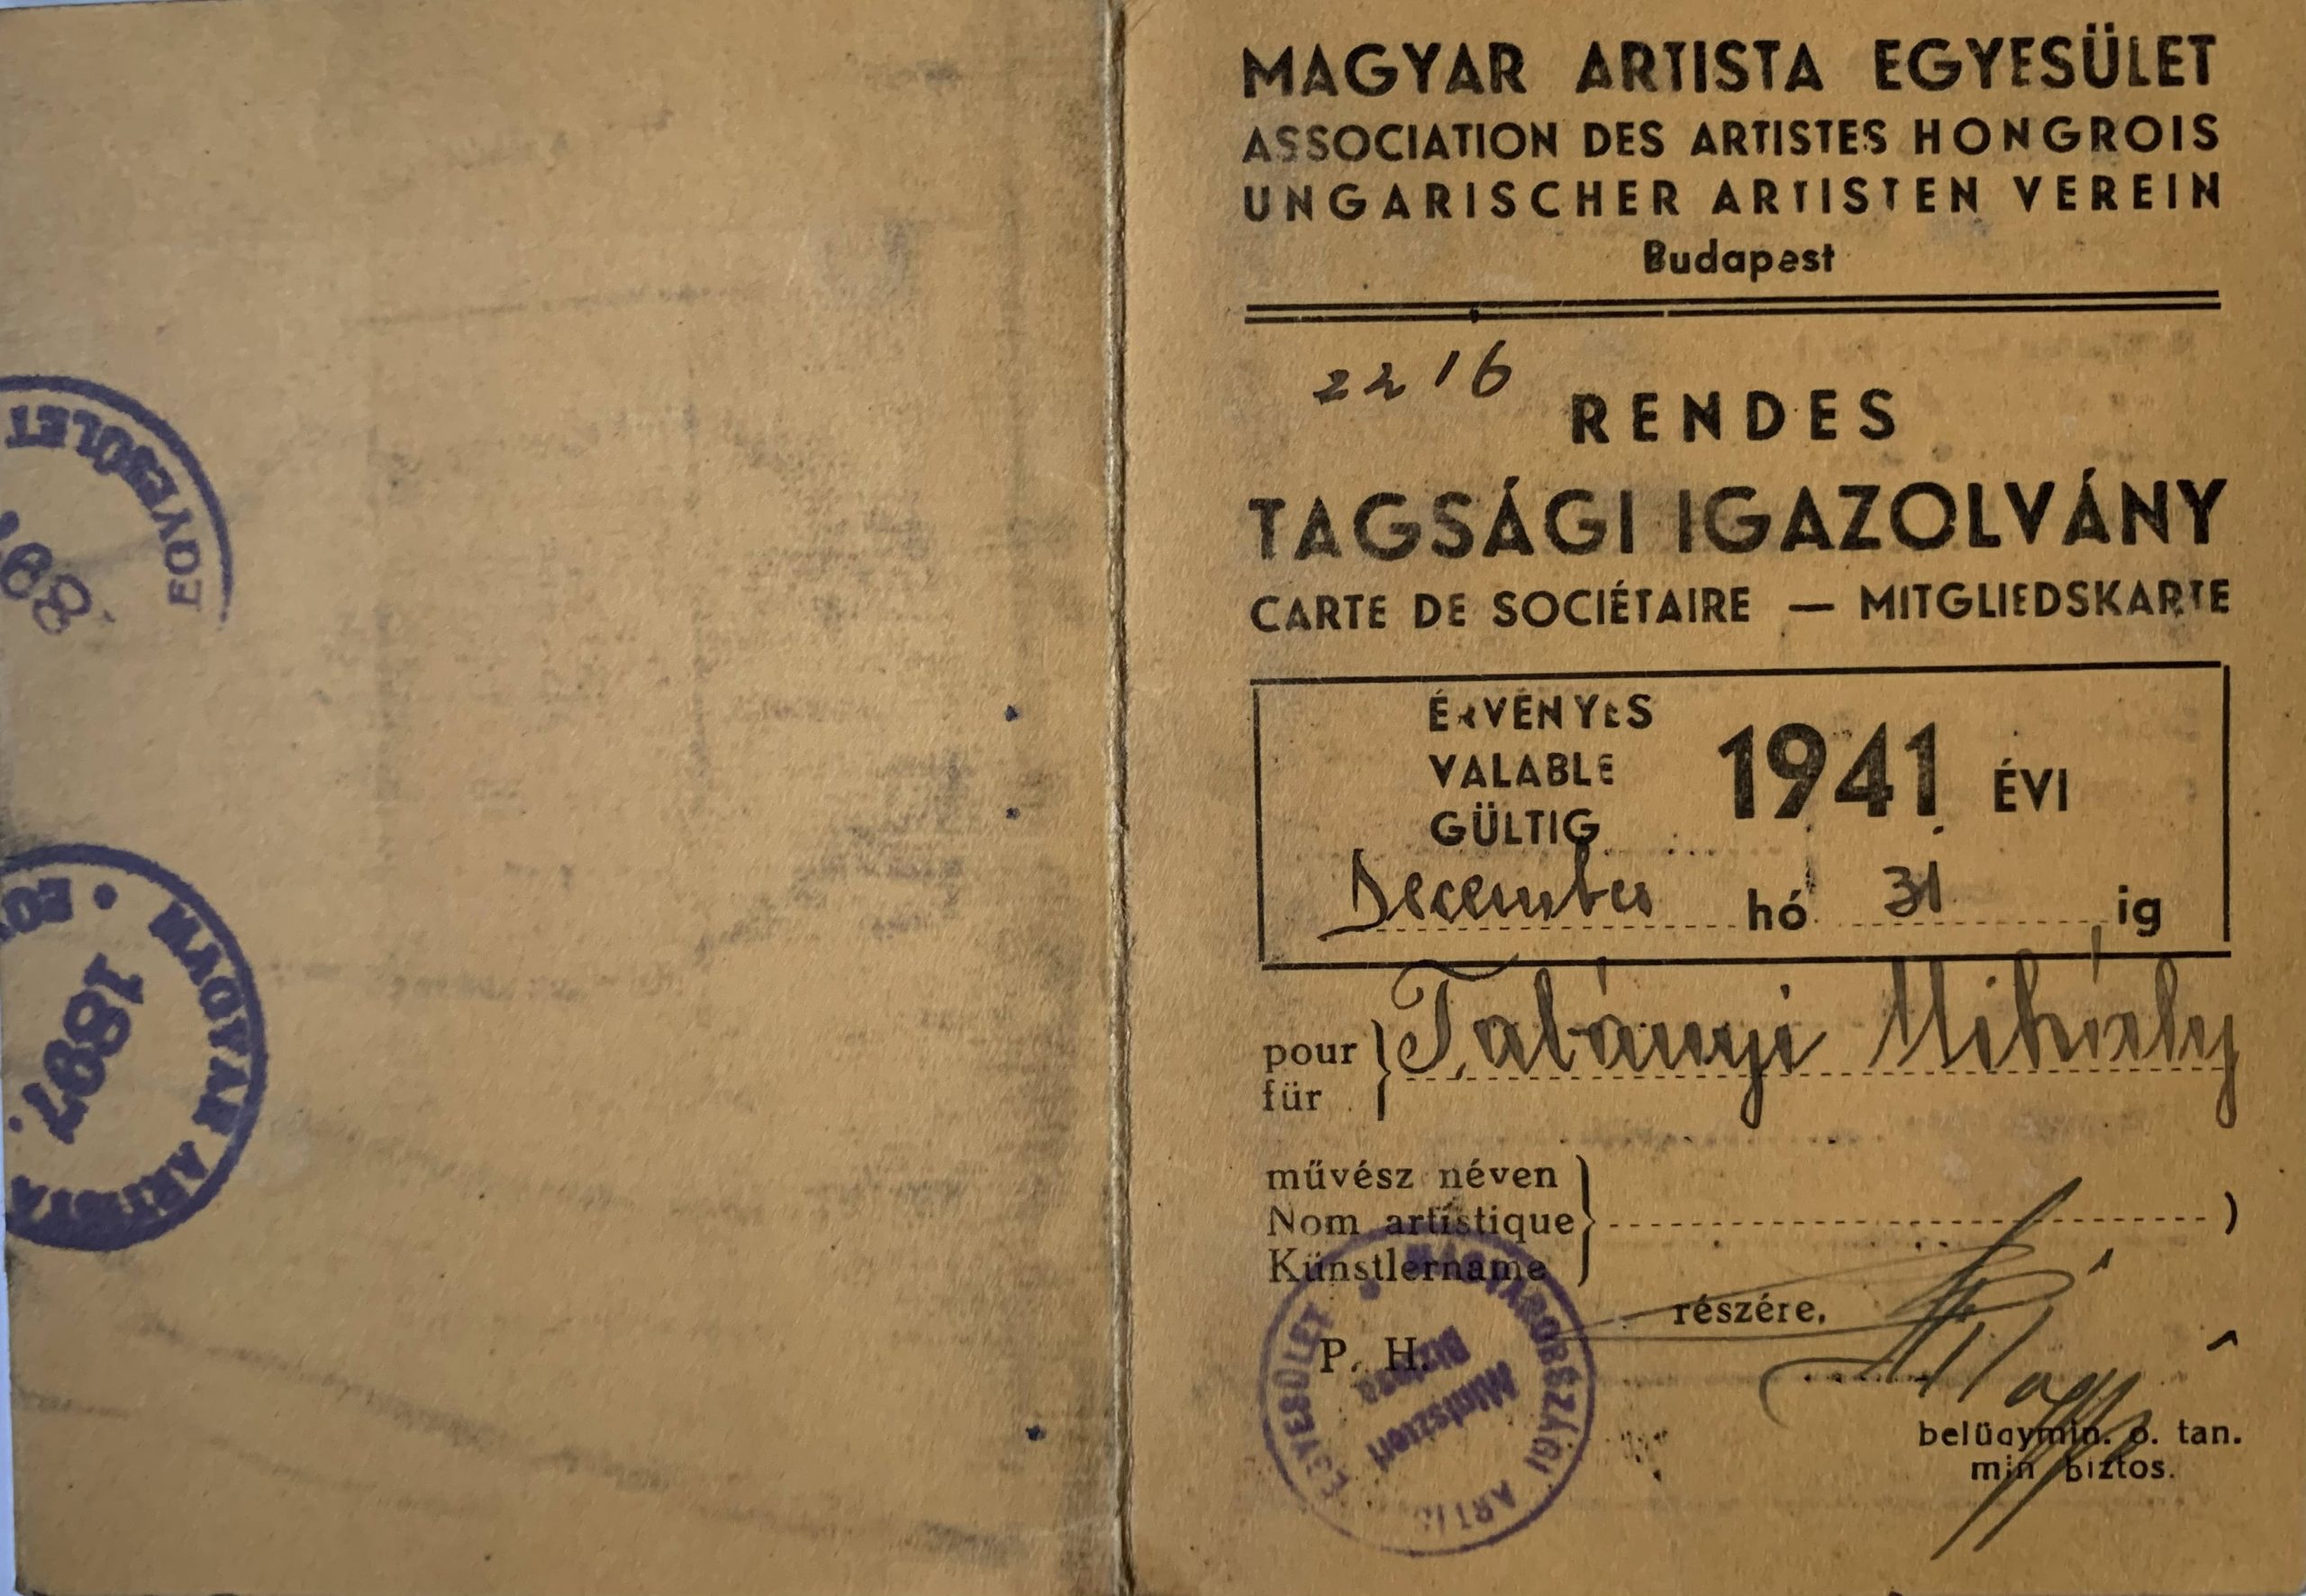 EGYESÜLET
MAGYAR ARTISTA
1897.
MAGYAR ARTISTA EGYESÜLET
ASSOCIATION DES ARTISTES HONGROIS
UNGARISCHER ARTISTEN VEREIN
Budapest
2216
RENDES
TAGSÁGI IGAZOLVÁNY
CARTE DE SOCIÉTAIRE — MITGLIEDSKARTE
ÉRVÉNYES
VALABLE 1941 ÉVI
GÜLTIG
December hó 31 ig
pour
für } Tabányi Mihály
művész néven
Nom artistique } )
Künstlername
részére,
P. H.
MAGYARORSZÁGI ARTISTA EGYESÜLET
Miniszteri
Biztosa
belügymin. o. tan.
min biztos.